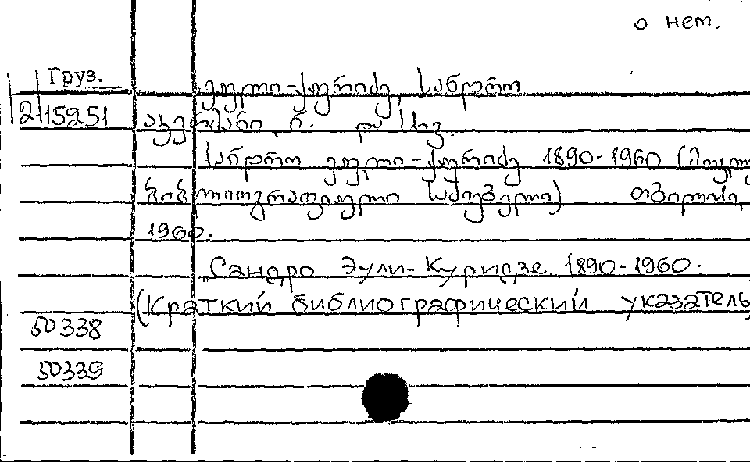 о нем.
Груз.
ეული-ქურიძე, სანდრო
2115251
და სხვ.
სანდრო ეული-ქურიძე 1890-1960 (მოკლე
ბიბლიოგრაფიული საძიებელი) თბილისი,
1960.
Сандро Эули-Куридзе. 1890-1960.
(Краткий библиографический указатель
50338
50339